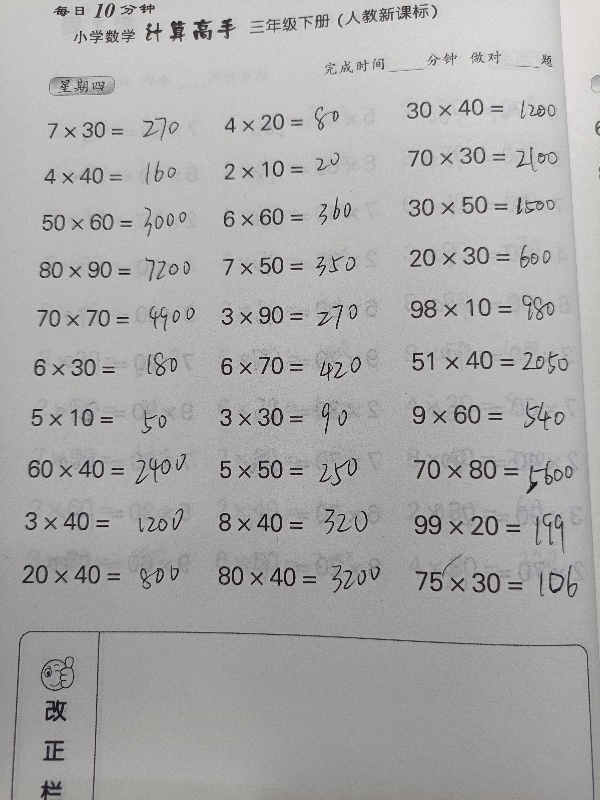 每日10分钟
小学数学 计算高手 三年级下册(人教新课标)
完成时间____分钟 做对____题
星期四
7×30= 270 4×20= 80 30×40= 1200
4×40= 160 2×10= 20 70×30= 2100
50×60= 3000 6×60= 360 30×50= 1500
80×90= 7200 7×50= 350 20×30= 600
70×70= 4900 3×90= 270 98×10= 980
6×30= 180 6×70= 420 51×40= 2050
5×10= 50 3×30= 90 9×60= 540
60×40= 2400 5×50= 250 70×80= 5600
3×40= 1200 8×40= 320 99×20= 199
20×40= 800 80×40= 3200 75×30= 106
改正栏